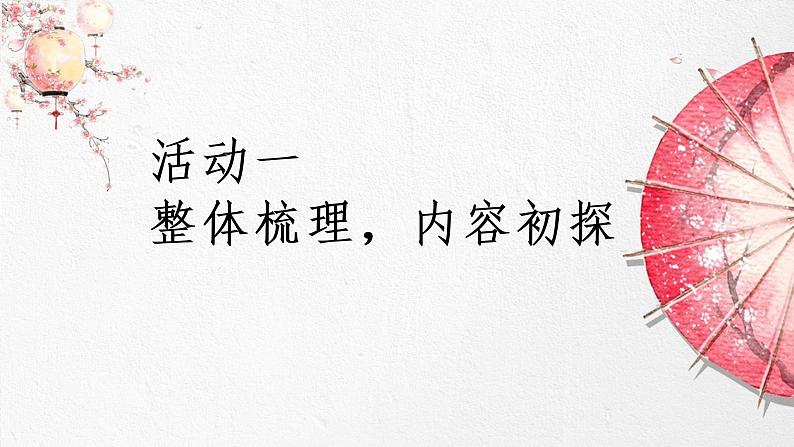 活动一
整体梳理，内容初探